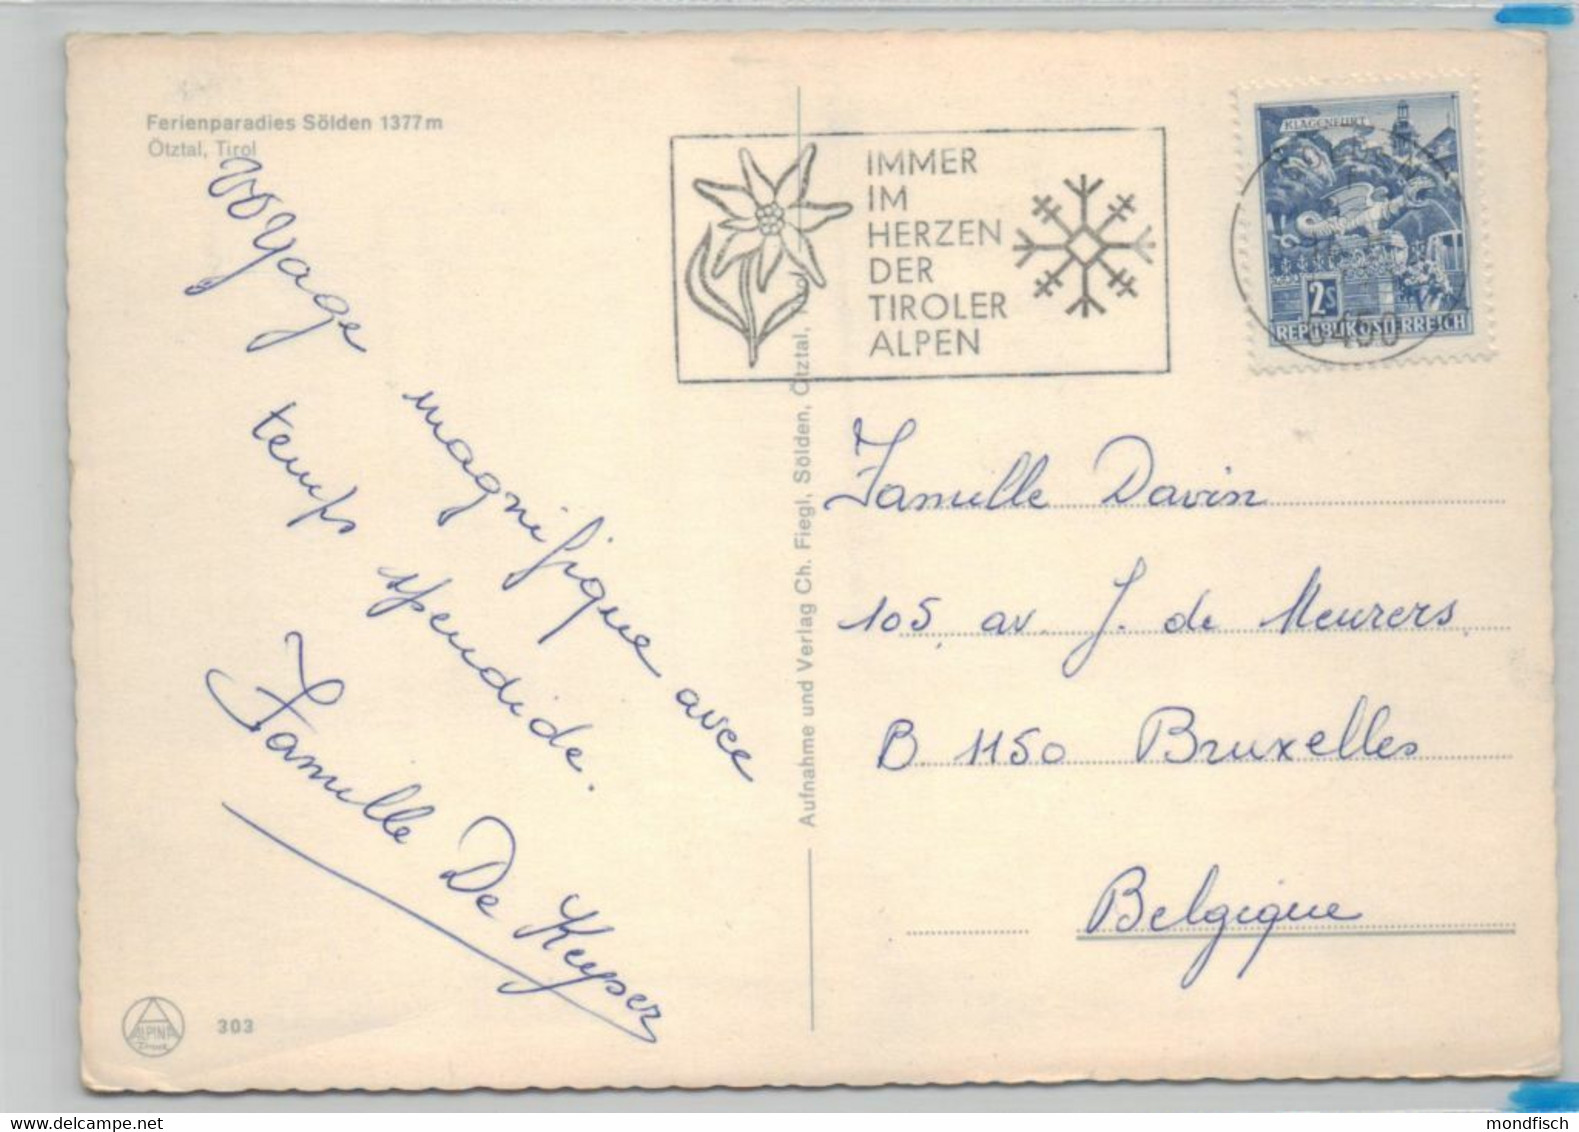 Ferienparadies Sölden 1377 m
Ötztal, Tirol
voyage magnifique avec
temps spendide.
Famille De Keyser
ALPINA
Druck
303
Aufnahme und Verlag Ch. Fiegl, Sölden, Ötztal, Tirol
IMMER
IM
HERZEN
DER
TIROLER
ALPEN
KLAGENFURT
2S
REPUBLIK ÖSTERREICH
6450
Famille Davin
105 av. J. de Meurers
B 1150 Bruxelles
Belgique
delcampe.net
mondfisch